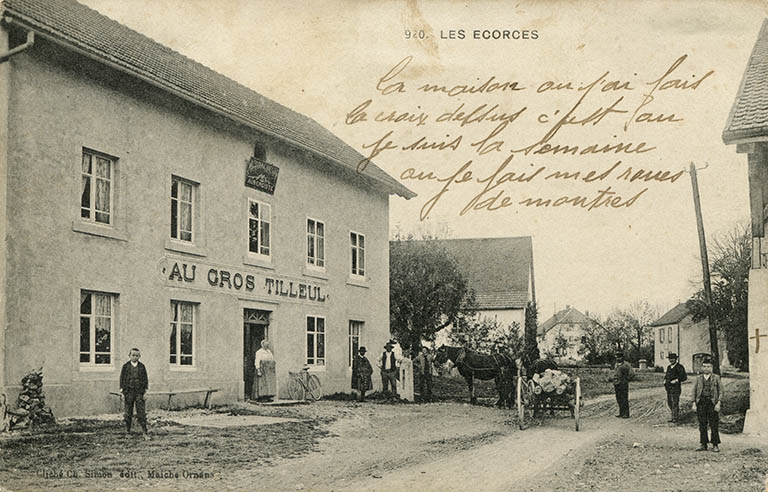 920. LES ECORCES
La maison ou j'ai fait
la croix dessus c'est au
je suis la semaine
ou je fais mes roues
de montres
AUBERGISTE
AU GROS TILLEUL
Cliché Ch. Simon édit., Maîche Ornans